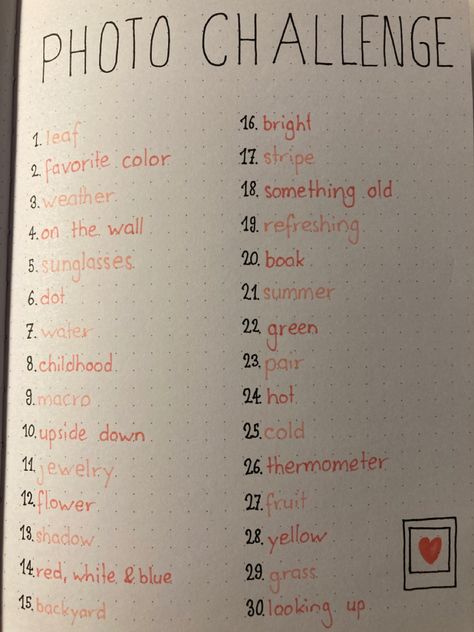 PHOTO CHALLENGE
1. leaf
2. favorite color
3. weather
4. on the wall
5. sunglasses
6. dot
7. water
8. childhood.
9. macro
10. upside down.
11. jewelry.
12. flower
13. shadow
14. red, white & blue
15. backyard
16. bright
17. stripe
18. something old
19. refreshing
20. book
21. summer
22. green
23. pair
24. hot
25. cold
26. thermometer
27. fruit
28. yellow
29. grass
30. looking up.